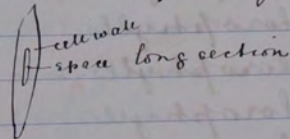 cell wall
space long section